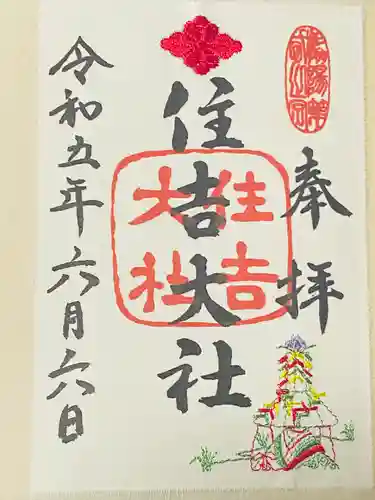 奉拝
住吉大社
住吉大社
令和五年六月六日